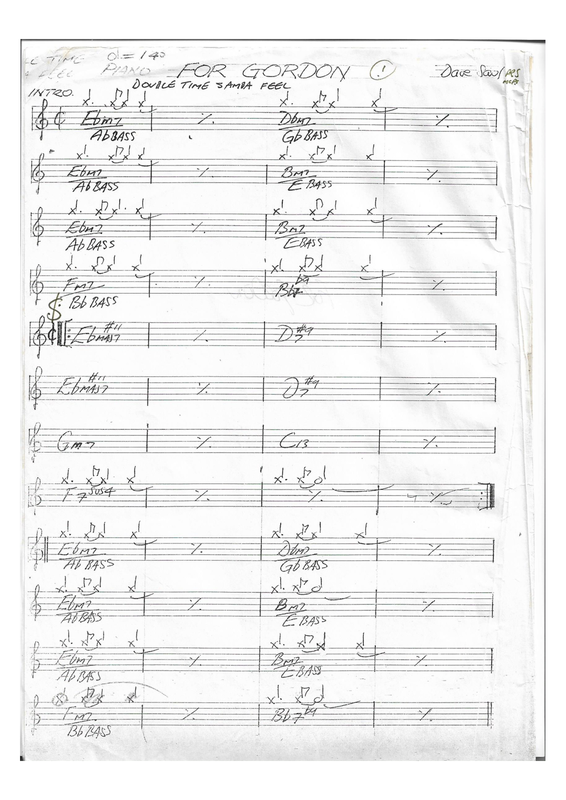 ♩=140
PIANO FOR GORDON 1 Dave
INTRO. DOUBLE TIME SAMBA FEEL
Ebm7 ٪ Dbm7
Ab BASS Gb BASS
Ebm7 ٪ Bm7 ٪
Ab BASS E BASS
Ebm7 ٪ Bm7 ٪
Ab BASS E BASS
Fm7 ٪ Bb7 b9 ٪
Bb BASS
Ebmaj7 #11 ٪ D7 #9 ٪
Ebmaj7 #11 ٪ D7 #9 ٪
Gm7 ٪ C13 ٪
F7 sus4 ٪ ٪ 4 ٪
Ebm7 ٪ Dbm7 ٪
Ab BASS Gb BASS
Ebm7 ٪ Bm7 ٪
Ab BASS E BASS
Ebm7 ٪ Bm7 ٪
Ab BASS E BASS
Fm7 ٪ Bb7 b9 ٪
Bb BASS